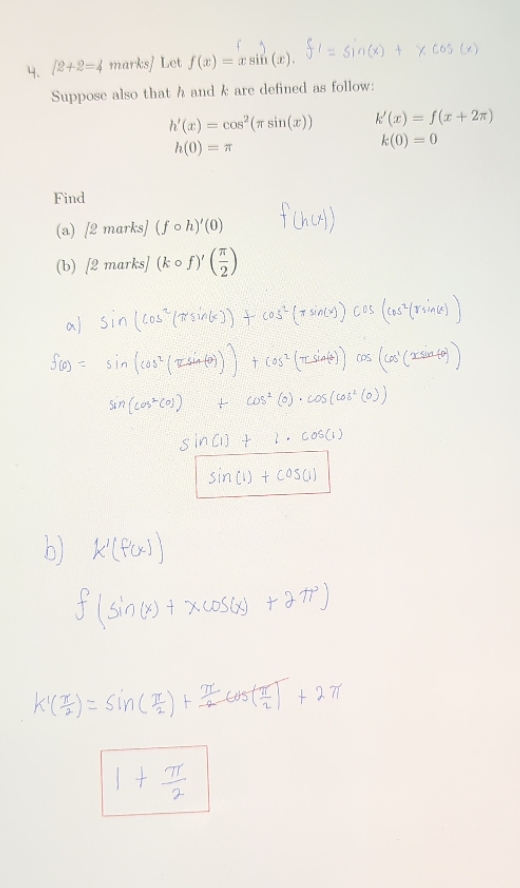 f g
4. [2+2=4 marks] Let f(x) = x sin (x). f' = sin(x) + x cos (x)
Suppose also that h and k are defined as follow:
h′(x) = cos²(π sin(x)) k′(x) = f(x + 2π)
h(0) = π k(0) = 0
Find
(a) [2 marks] (f ∘ h)′(0) f(h(x))
(b) [2 marks] (k ∘ f)′(π/2)
a) sin (cos²(π sin(x)) + cos² (π sin(x)) cos (cos²(π sin(x))
f(0) = sin (cos² (π sin(0))) + cos² (π sin(0)) cos (cos² (π sin(0))
sin (cos² (0)) + cos² (0) · cos(cos² (0))
sin(1) + 1 · cos(1)
sin(1) + cos(1)
b) k'(f(x))
f (sin(x) + x cos(x) + 2π)
k'(π/2) = sin(π/2) + π/2 cos(π/2) + 2π
1 + π/2